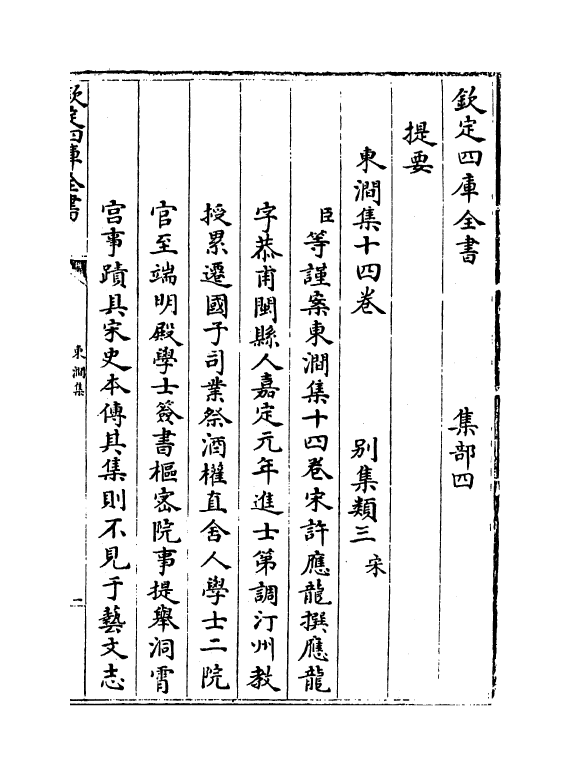 欽定四庫全書　集部四
提要
東澗集十四卷　别集類三 宋
臣等謹案東澗集十四卷宋許應龍撰應龍
字恭甫閩縣人嘉定元年進士第調汀州教
授累遷國子司業祭酒權直舍人學士二院
官至端明殿學士簽書樞密院事提舉洞霄
宫事蹟具宋史本傳其集則不見于藝文志
欽定四庫全書
東澗集